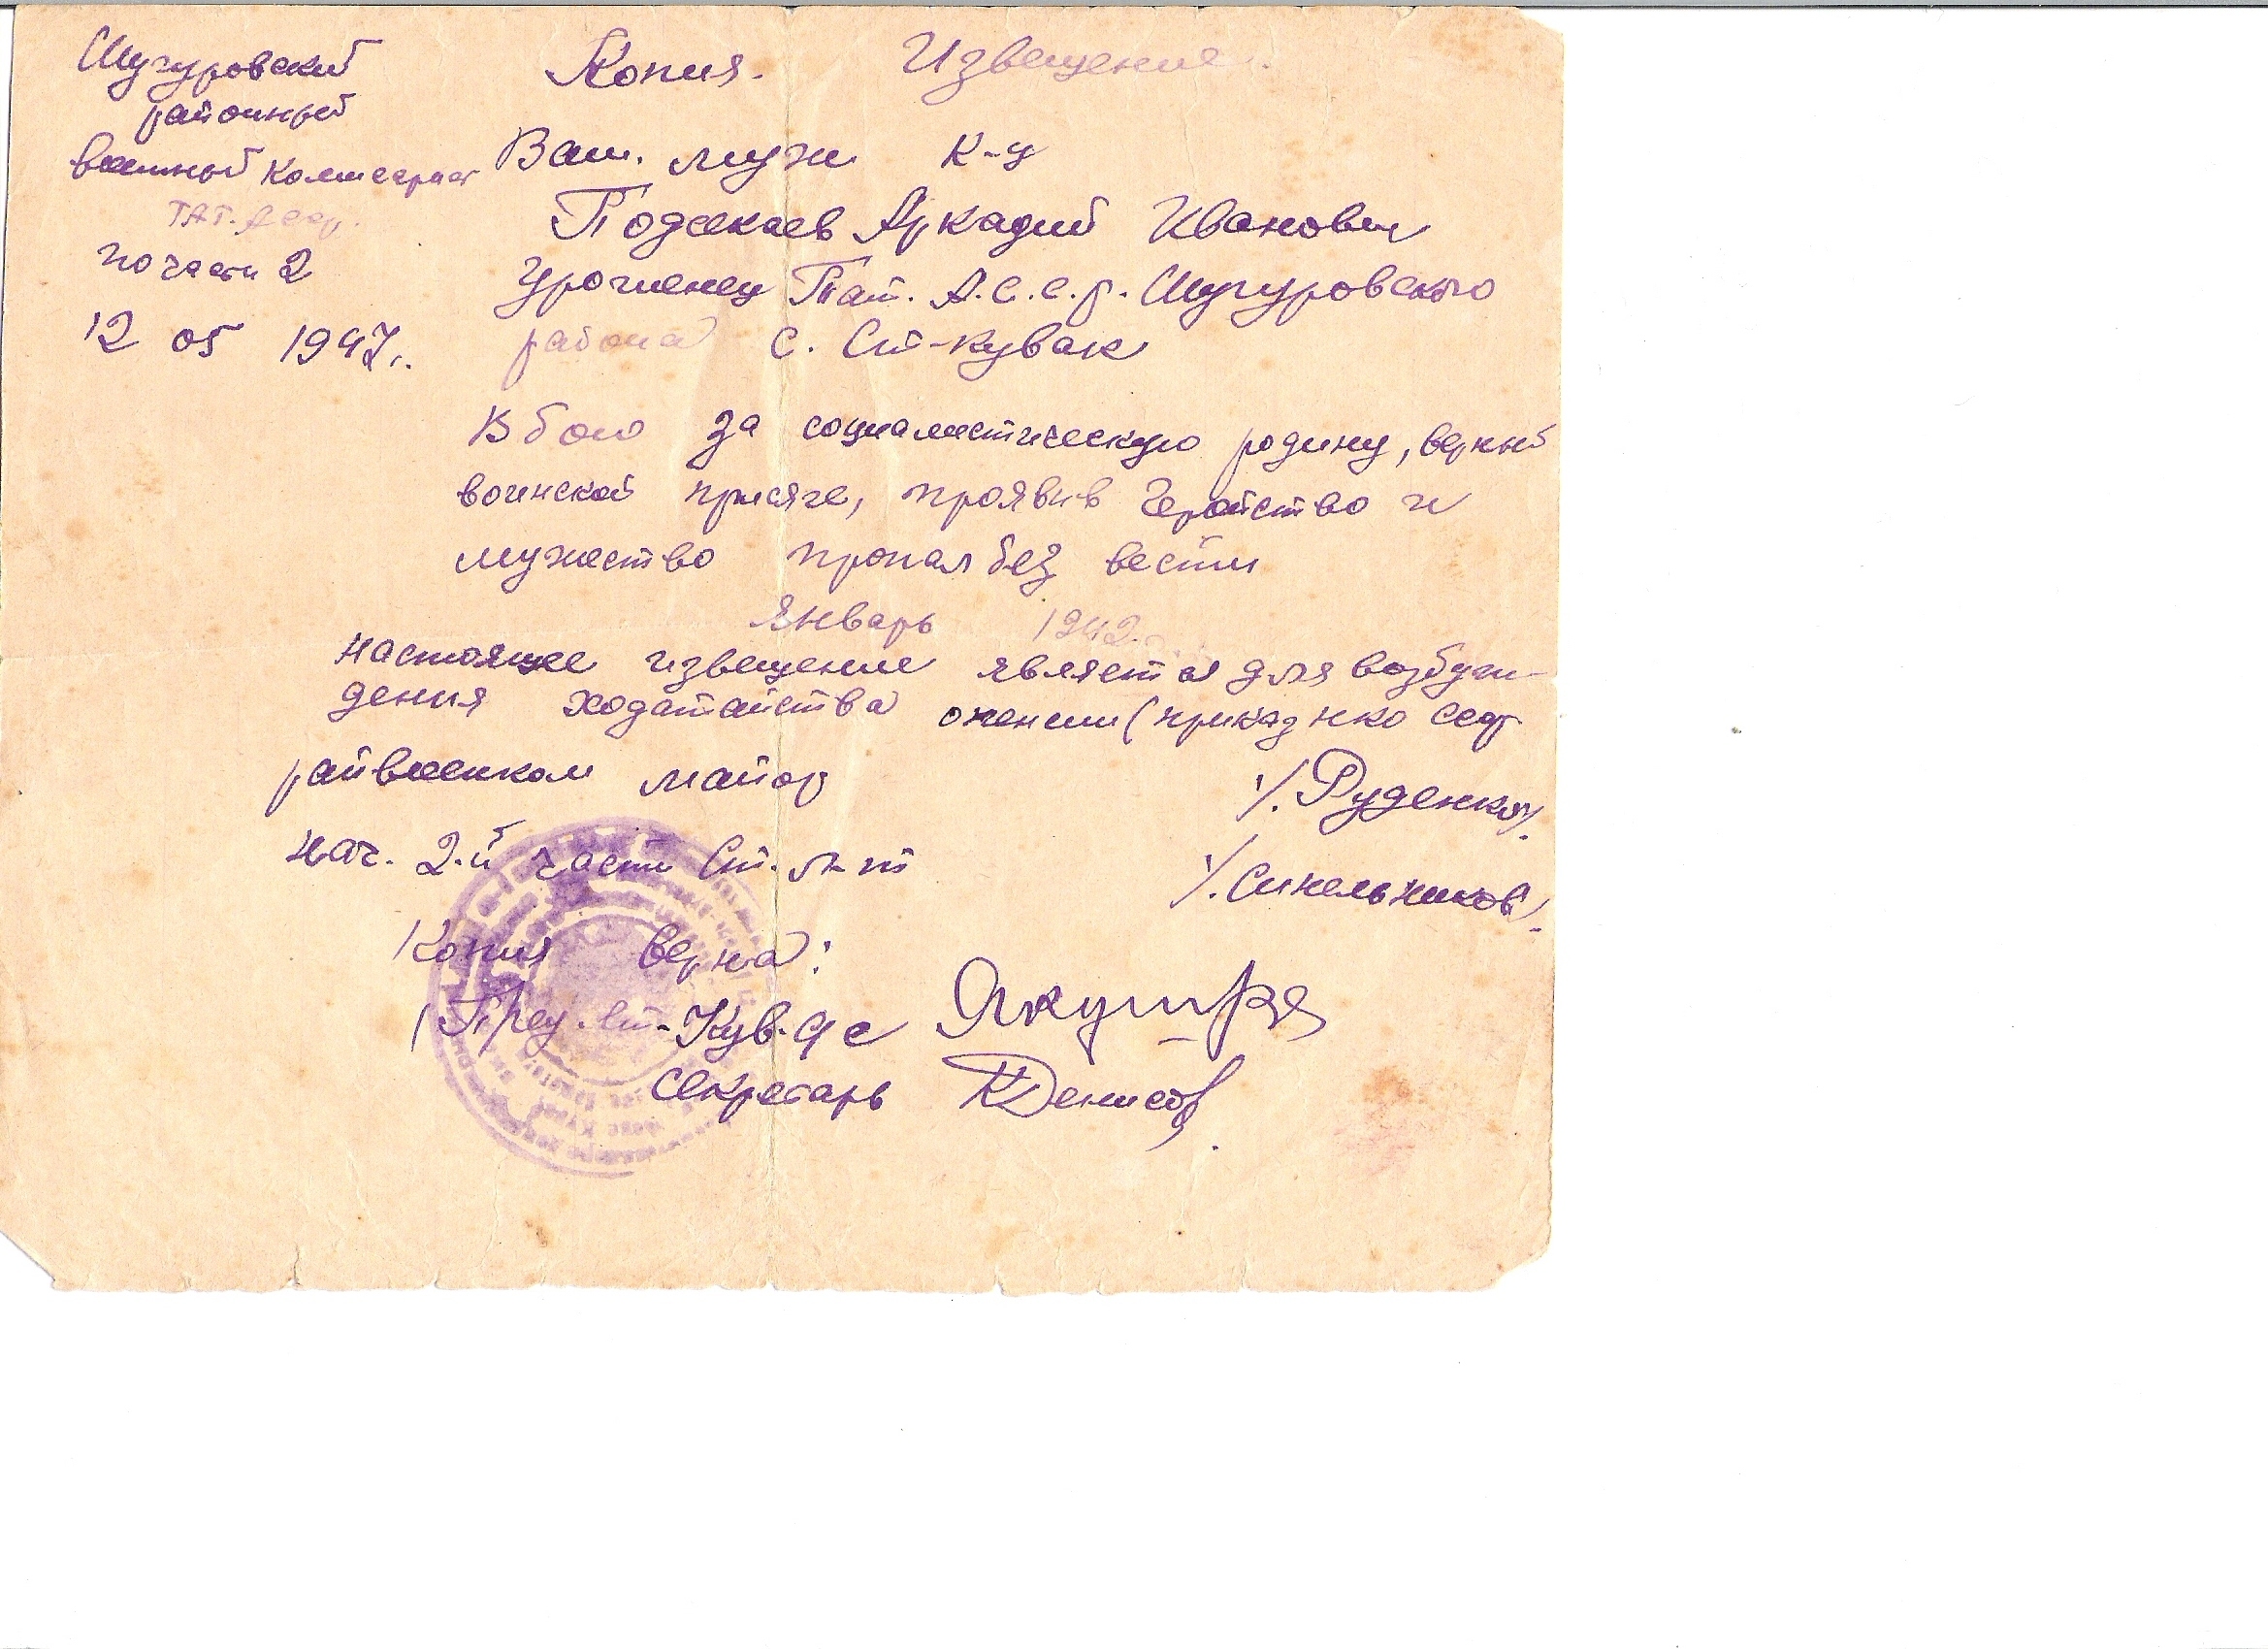 Шугуровский
районный
военный комиссариат
ТАТ. Асср.
по части 2
12 05 1947г.
Копия. Извещение.
Ваш. муж к-ц
Подсекаев Аркадий Иванович
Уроженец Тат. А.С.С.р. Шугуровского
района с. Ст-Кувак
В бою за социалистическую родину, верный
воинской присяге, проявив геройство и
мужество пропал без вести
Январь 1942.
настоящее извещение является для возбуж-
дения ходатайства о пенсии (приказ нко ссср
райвоенком майор /. Руденко/.
нач. 2-й части Ст. л-т /. Синельников/.
Копия верна:
/ Пред. Ст-Кув. с/с
секретарь КДенисов